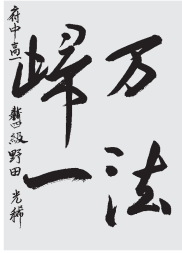 万法
歸一
府中高一 四級 野田 光稀